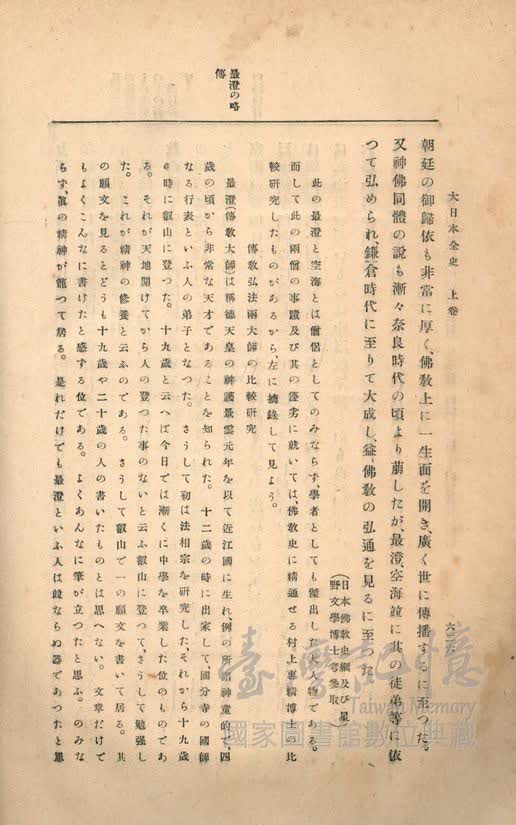 大日本全史　上卷
六三六
朝廷の御歸依も非常に厚く、佛敎上に一生面を開き、廣く世に傳播するに至つた。
又神佛同體の說も漸々奈良時代の頃より萠したが、最澄、空海竝に其の徒弟等に依
つて弘められ、鎌倉時代に至りて大成し、益〻佛敎の弘通を見るに至つた。
（日本佛敎史綱及び星
野文學博士考參取）
此の最澄と空海とは僧侶としてのみならず、學者としても傑出した大人物である。
而して此の兩僧の事蹟及び其の優劣に就いては、佛敎史に精通せる村上專精博士の比
較硏究したものがあるから、左に摘錄して見よう。
傳敎弘法兩大師の比較硏究
最澄の略
傳
最澄（傳敎大師）は稱德天皇の神護景雲元年を以て近江國に生れ、例の所謂神童的で、四
歲の頃から非常な天才であることを知られた。十二歲の時に出家して、國分寺の國師
なる行表といふ人の弟子となつた。さうして初は法相宗を硏究した、それから十九歲
の時に叡山に登つた。十九歲と云へば今日では漸くに中學を卒業した位のものであ
る。それが天地開けてから人の登つた事のないと云ふ叡山に登つて、さうして勉强し
た。これが精神の修養と云ふのである。さうして叡山で一の願文を書いて居る。其
の願文を見るとどうも十九歲や二十歲の人の書いたものとは思へない。文章だけで
もよくこんなに書けたと感ずる位である。よくあんなに筆が立つたと思ふ。のみな
らず、眞の精神が籠つて居る。是れだけでも最澄といふ人は竝ならぬ器であつたと思
臺灣記憶
Taiwan Memory
國家圖書館數位典藏